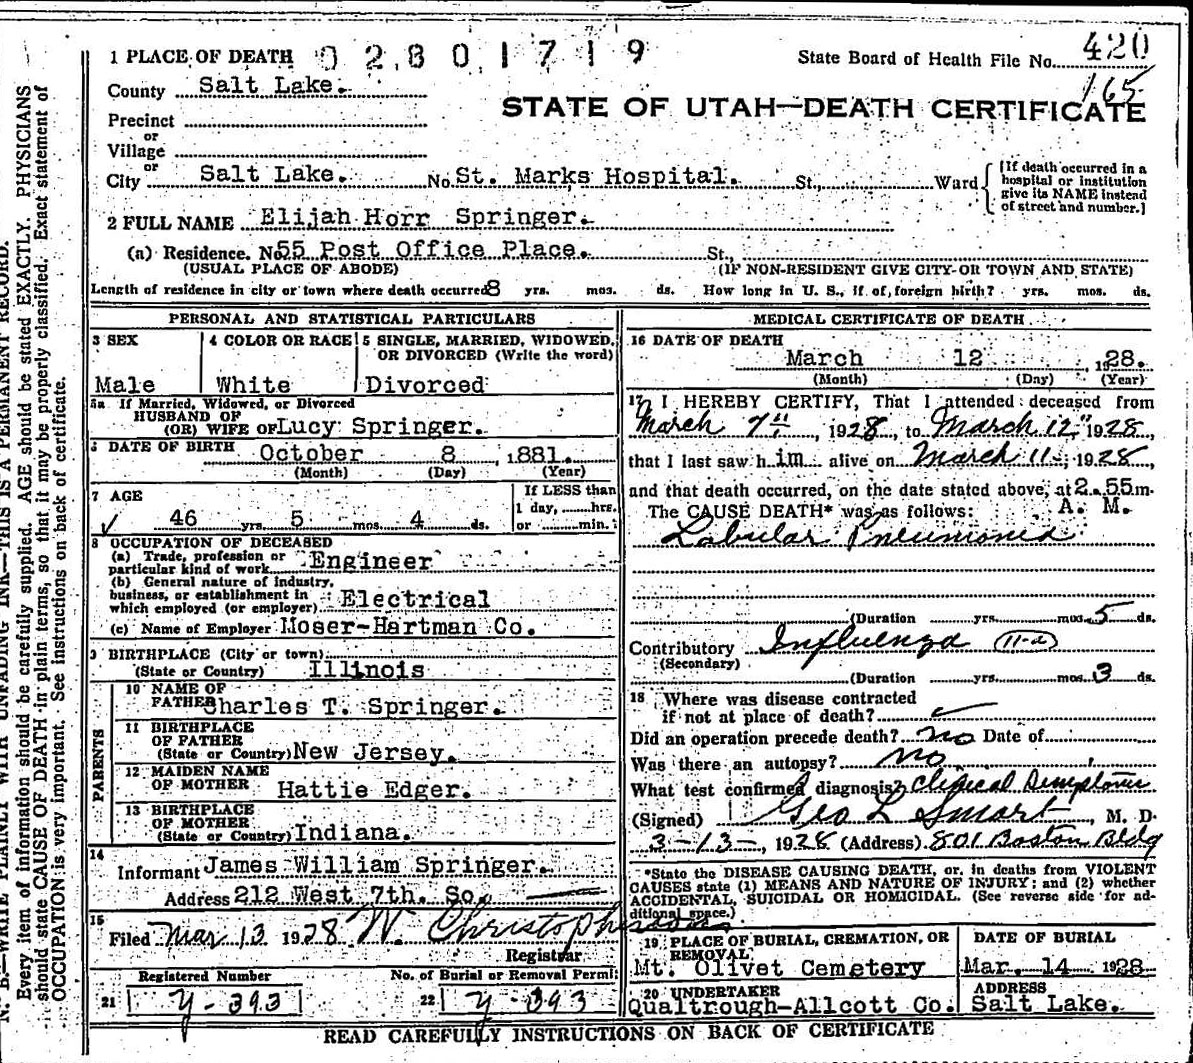 1 PLACE OF DEATH 02301719 State Board of Health File No. 420
County Salt Lake. 165
STATE OF UTAH—DEATH CERTIFICATE
Precinct
or
Village
or
City Salt Lake. No. St. Marks Hospital. St., Ward
[If death occurred in a
hospital or institution
give its NAME instead
of street and number.]
2 FULL NAME Elijah Horr Springer.
(a) Residence. No. 55 Post Office Place. St.,
(USUAL PLACE OF ABODE) (IF NON-RESIDENT GIVE CITY OR TOWN AND STATE)
Length of residence in city or town where death occurred 8 yrs. mos. ds. How long in U. S., if of foreign birth? yrs. mos. ds.
PERSONAL AND STATISTICAL PARTICULARS
3 SEX 4 COLOR OR RACE 5 SINGLE, MARRIED, WIDOWED,
OR DIVORCED (Write the word)
Male White Divorced
5a If Married, Widowed, or Divorced
HUSBAND OF
(OR) WIFE OF Lucy Springer.
6 DATE OF BIRTH October 8 1881.
(Month) (Day) (Year)
7 AGE If LESS than
1 day, hrs.
✓ 46 yrs. 5 mos. 4 ds. or min.
8 OCCUPATION OF DECEASED
(a) Trade, profession or
particular kind of work Engineer
(b) General nature of industry,
business, or establishment in
which employed (or employer) Electrical
(c) Name of Employer Moser-Hartman Co.
9 BIRTHPLACE (City or town)
(State or Country) Illinois
PARENTS
10 NAME OF
FATHER Charles T. Springer.
11 BIRTHPLACE
OF FATHER
(State or Country) New Jersey.
12 MAIDEN NAME
OF MOTHER Hattie Edger.
13 BIRTHPLACE
OF MOTHER
(State or Country) Indiana.
14
Informant James William Springer.
Address 212 West 7th. So.
15
Filed Mar 13 1928 W. Christopherson
Registrar
Registered Number No. of Burial or Removal Permit
21 Y-393 22 Y-393
MEDICAL CERTIFICATE OF DEATH
16 DATE OF DEATH
March 12 , 1928.
(Month) (Day) (Year)
17 I HEREBY CERTIFY, That I attended deceased from
March 7th, 1928, to March 12" 1928,
that I last saw him alive on March 11, 1928,
and that death occurred, on the date stated above, at 2.55 m.
The CAUSE DEATH* was as follows: A. M.
Lobular Pneumonia
(Duration yrs. mos. 5 ds.
Contributory Influenza 11-a
(Secondary)
(Duration yrs. mos. 3 ds.
18 Where was disease contracted
if not at place of death?
Did an operation precede death? no Date of
Was there an autopsy? no
What test confirmed diagnosis? Clinical Symptoms
(Signed) Geo L Smart, M. D.
3-13-, 1928 (Address) 801 Boston Bldg
*State the DISEASE CAUSING DEATH, or, in deaths from VIOLENT
CAUSES state (1) MEANS AND NATURE OF INJURY; and (2) whether
ACCIDENTAL, SUICIDAL OR HOMICIDAL. (See reverse side for ad-
ditional space.)
19 PLACE OF BURIAL, CREMATION, OR
REMOVAL DATE OF BURIAL
Mt. Olivet Cemetery Mar. 14 1928
20 UNDERTAKER ADDRESS
Qualtrough-Allcott Co. Salt Lake.
READ CAREFULLY INSTRUCTIONS ON BACK OF CERTIFICATE
N. B.—WRITE PLAINLY WITH UNFADING INK—THIS IS A PERMANENT RECORD.
Every item of information should be carefully supplied. AGE should be stated EXACTLY. PHYSICIANS
should state CAUSE OF DEATH in plain terms, so that it may be properly classified. Exact statement of
OCCUPATION is very important. See instructions on back of certificate.